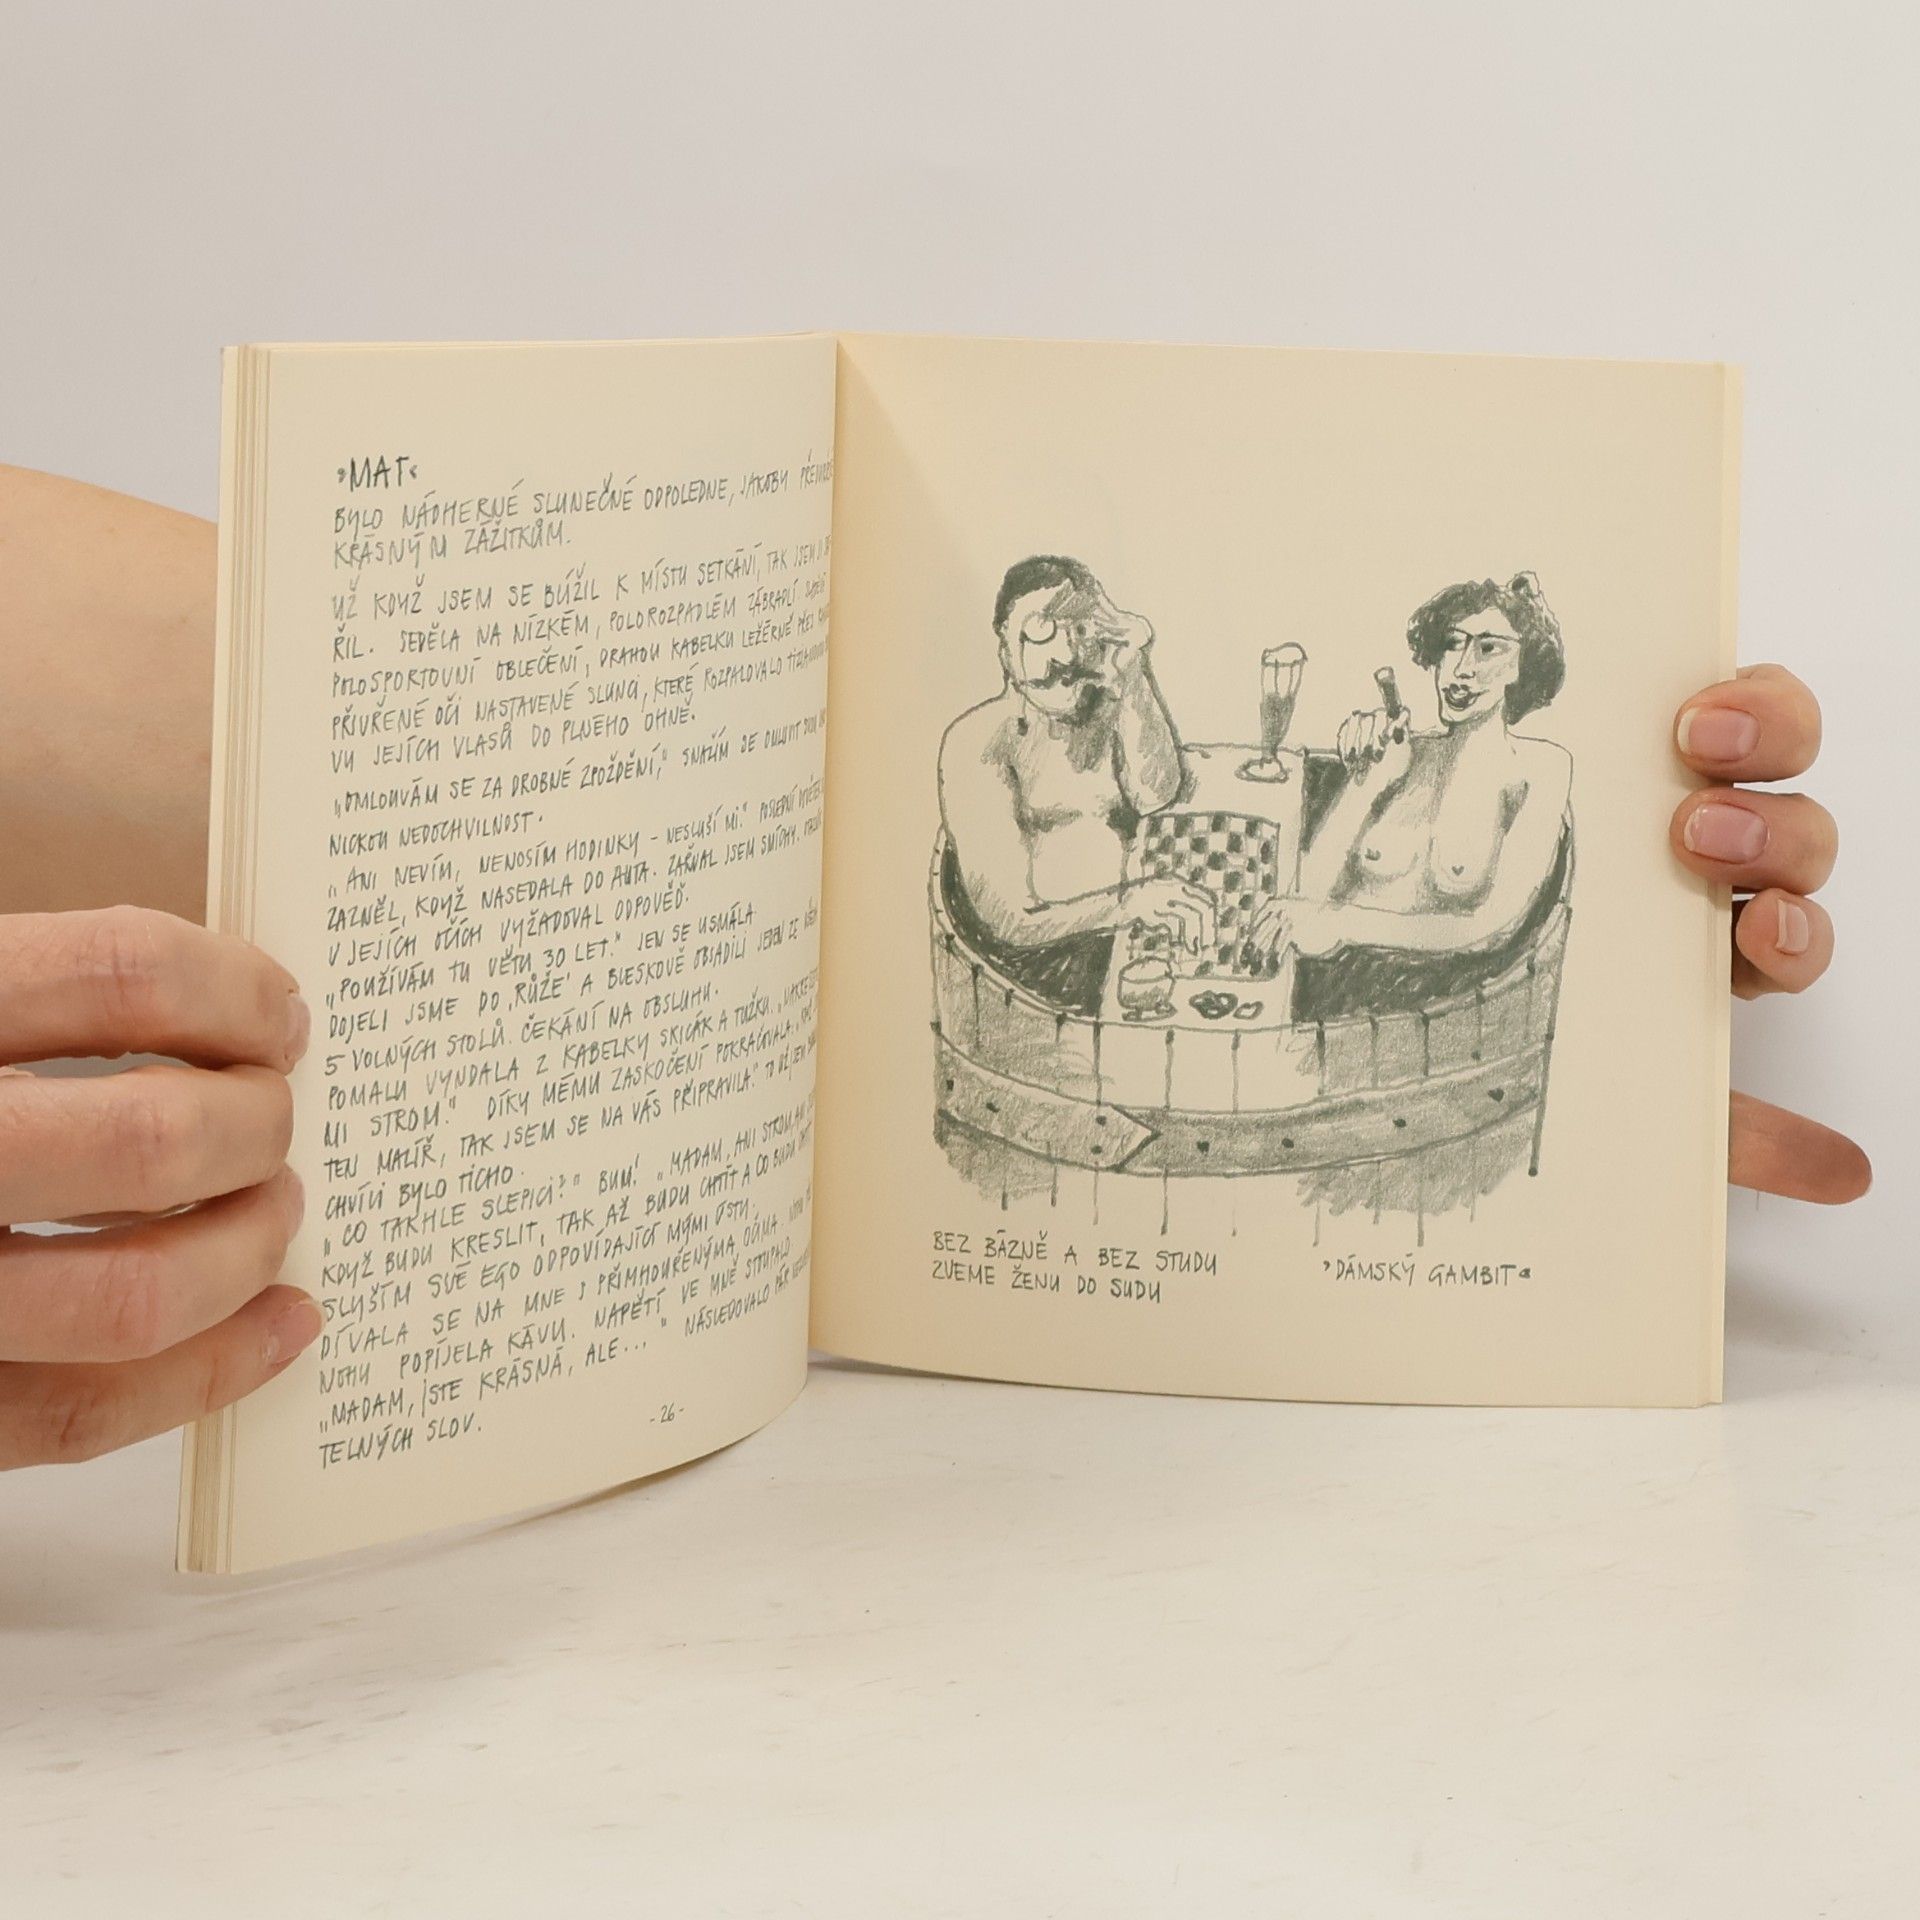 »MAT«
BYLO NÁDHERNÉ SLUNEČNÉ ODPOLEDNE, JAKOBY
KRÁSNÝM ZÁŽITKŮM.
UŽ KDYŽ JSEM SE BLÍŽIL K MÍSTU SETKÁNÍ, TAK JSEM JI
ŘIL. SEDĚLA NA NÍZKÉM, POLOROZPADLÉM ZÁBRADLÍ.
POLOSPORTOVNÍ OBLEČENÍ, DRAHOU KABELKU LEŽÉRNĚ PŘES
PŘIVŘENÉ OČI NASTAVENÉ SLUNCI, KTERÉ ROZPALOVALO
VU JEJÍCH VLASŮ DO PLNÉHO OHNĚ.
„OMLOUVÁM SE ZA DROBNÉ ZPOŽDĚNÍ," SNAŽÍM SE OMLUVIT
NICKOU NEDOCHVILNOST.
„ANI NEVÍM, NENOSÍM HODINKY – NESLUŠÍ MI." POSLEDNÍ
ZAZNĚL, KDYŽ NASEDALA DO AUTA. ZAŘVAL JSEM SMÍCHY.
V JEJÍCH OČÍCH VYŽADOVAL ODPOVĚĎ.
„POUŽÍVÁM TU VĚTU 30 LET." JEN SE USMÁLA.
DOJELI JSME DO ‚RŮŽE' A BLESKOVĚ OBSADILI JEDEN ZE
5 VOLNÝCH STOLŮ. ČEKÁNÍ NA OBSLUHU.
POMALU VYNDALA Z KABELKY SKICÁK A TUŽKU.
MI STROM." DÍKY MÉMU ZASKOČENÍ POKRAČOVALA.
TEN MALÍŘ, TAK JSEM SE NA VÁS PŘIPRAVILA." TO UŽ JSEM
CHVÍLI BYLO TICHO.
„CO TAKHLE SLEPICI?" BUM! „MADAM, ANI STROM, ANI
KDYŽ BUDU KRESLIT, TAK AŽ BUDU CHTÍT A CO BUDU CHTÍT
SLYŠÍM SVÉ EGO ODPOVÍDAJÍCÍ MÝMI ÚSTY.
DÍVALA SE NA MNE S PŘIMHOUŘENÝMA OČIMA.
NOHU POPÍJELA KÁVU. NAPĚTÍ VE MNĚ STOUPALO
„MADAM, JSTE KRÁSNÁ, ALE..." NÁSLEDOVALO PÁR
TELNÝCH SLOV.
-26-
BEZ BÁZNĚ A BEZ STUDU
ZVEME ŽENU DO SUDU
»DÁMSKÝ GAMBIT«